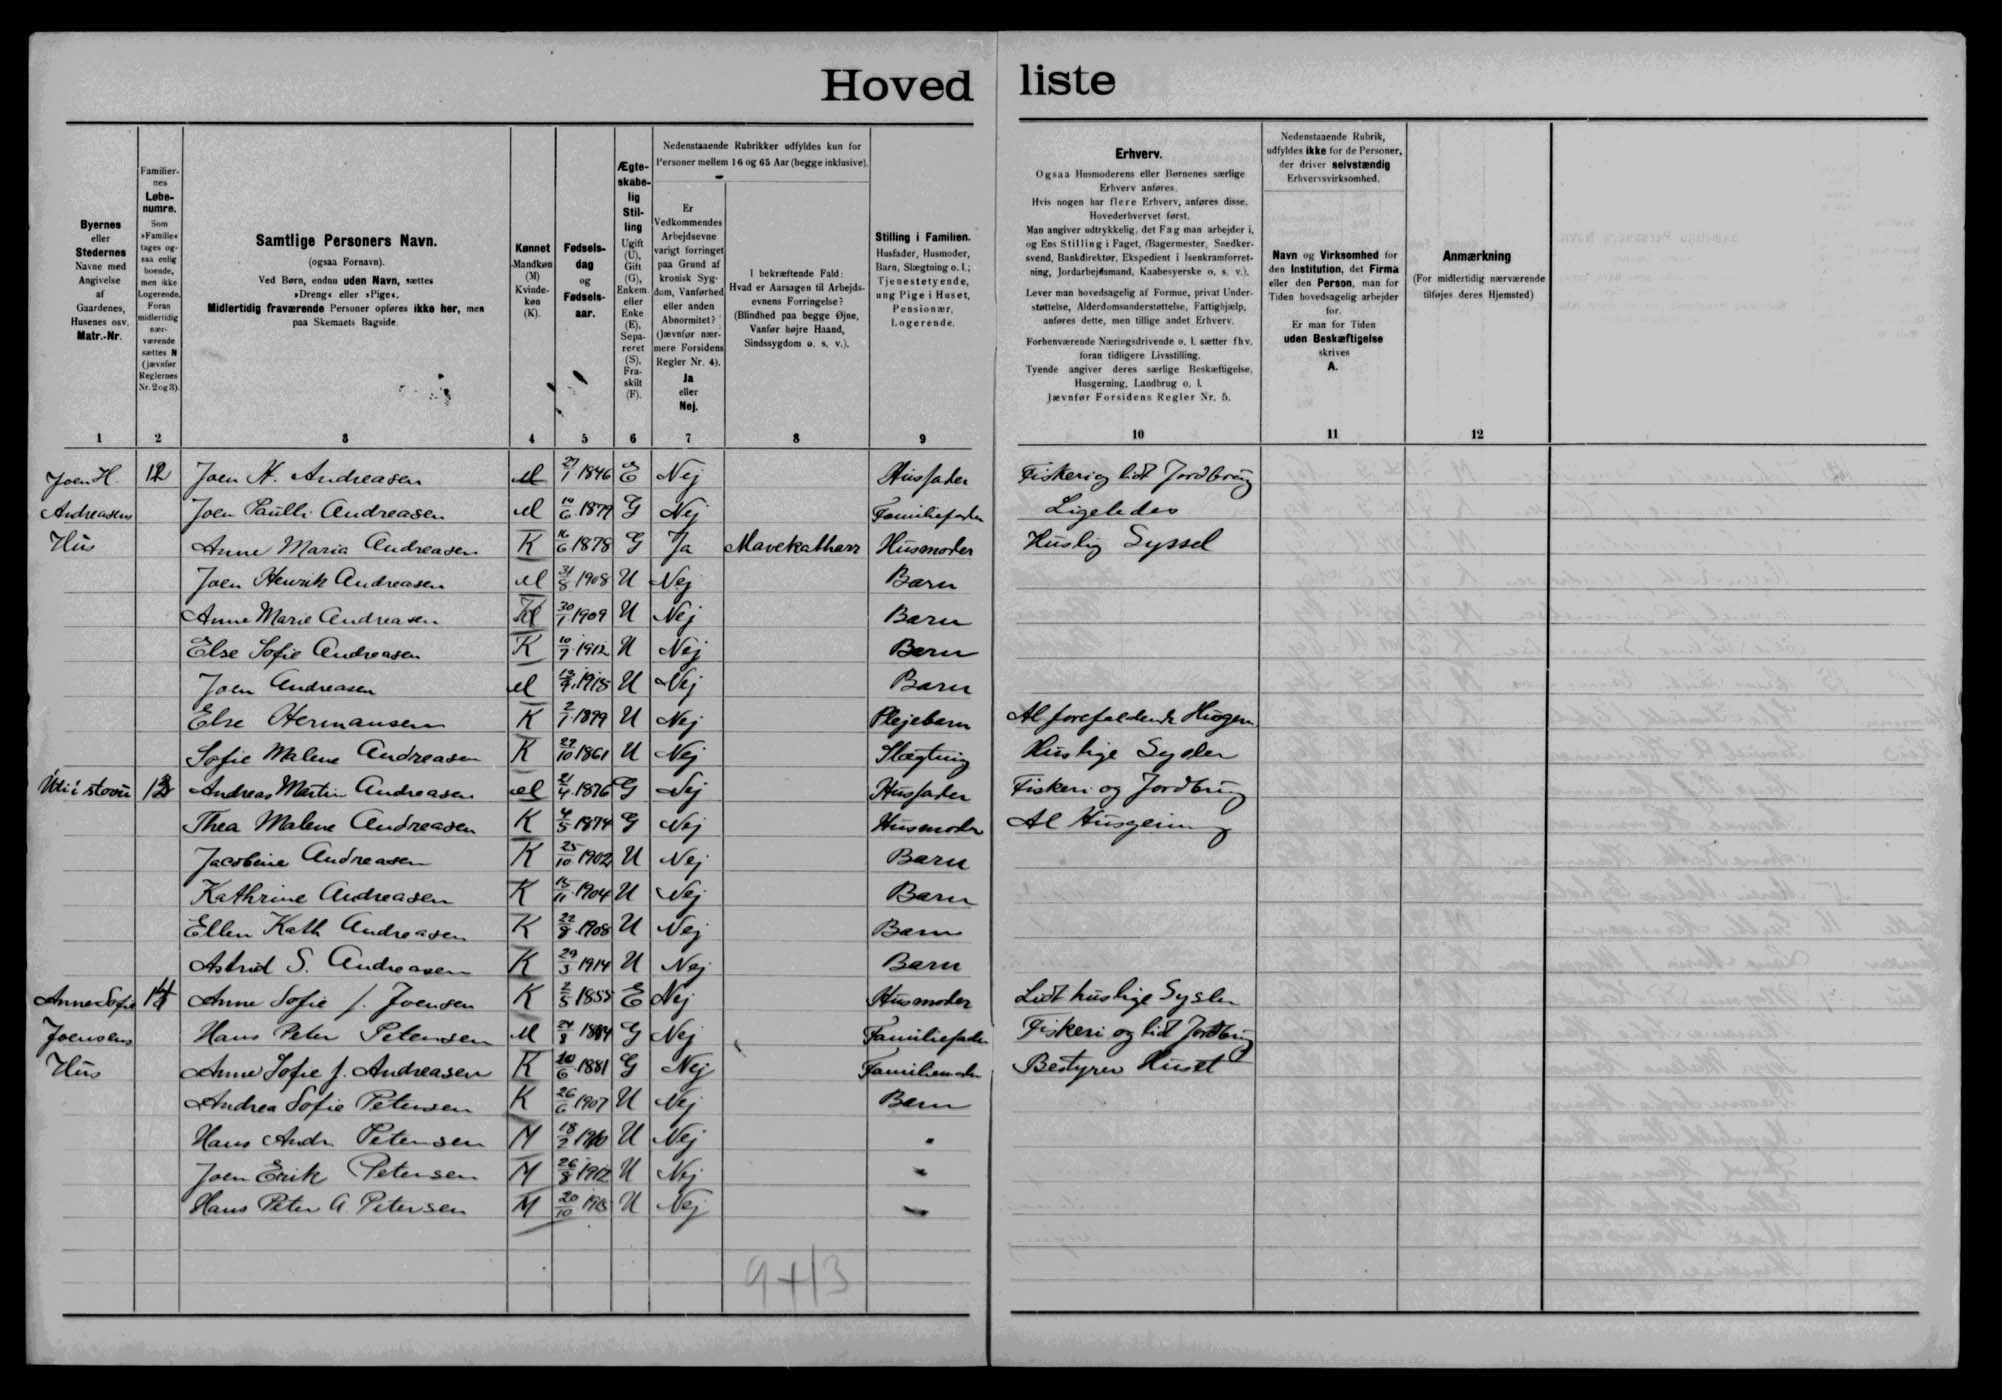 Hovedliste
Byernes eller Stedernes Navne med Angivelse af Gaardenes, Husenes osv. Matr.-Nr.
Familiernes Løbenumre. Som »Familie« tages ogsaa enlig boende, men ikke Logerende. Foran midlertidig nærværende sættes N (jævnfør Reglernes Nr. 2 og 3).
Samtlige Personers Navn.
(ogsaa Fornavn).
Ved Børn, endnu uden Navn, sættes »Dreng« eller »Pige«.
Midlertidig fraværende Personer opføres ikke her, men paa Skemaets Bagside.
Kønnet Mandkøn (M) Kvindekøn (K).
Fødselsdag og Fødselsaar.
Ægteskabelig Stilling Ugift (U), Gift (G), Enkem. eller Enke (E), Separeret (S), Fraskilt (F).
Nedenstaaende Rubrikker udfyldes kun for Personer mellem 16 og 65 Aar (begge inklusive).
Er Vedkommendes Arbejdsevne varigt forringet paa Grund af kronisk Sygdom, Vanførhed eller anden Abnormitet? (Jævnfør nærmere Forsidens Regler Nr. 4). Ja eller Nej.
I bekræftende Fald: Hvad er Aarsagen til Arbejdsevnens Forringelse? (Blindhed paa begge Øjne, Vanfør højre Haand, Sindssygdom o. s. v.).
Stilling i Familien.
Husfader, Husmoder, Barn, Slægtning o. l.; Tjenestetyende, ung Pige i Huset, Pensionær, Logerende.
Erhverv.
Ogsaa Husmoderens eller Børnenes særlige Erhverv anføres.
Hvis nogen har flere Erhverv, anføres disse. Hovederhvervet først.
Man angiver udtrykkelig, det Fag man arbejder i, og Ens Stilling i Faget, (Bagermester, Snedkersvend, Bankdirektør, Ekspedient i Isenkramforretning, Jordarbejdsmand, Kaabesyerske o. s. v.).
Lever man hovedsagelig af Formue, privat Understøttelse, Alderdomsunderstøttelse, Fattighjælp, anføres dette, men tillige andet Erhverv.
Forhenværende Næringsdrivende o. l. sætter fhv. foran tidligere Livsstilling.
Tyende angiver deres særlige Beskæftigelse, Husgerning, Landbrug o. l.
Jævnfør Forsidens Regler Nr. 5.
Nedenstaaende Rubrik, udfyldes ikke for de Personer, der driver selvstændig Erhvervsvirksomhed.
Navn og Virksomhed for den Institution, det Firma eller den Person, man for Tiden hovedsagelig arbejder for.
Er man for Tiden uden Beskæftigelse skrives A.
Anmærkning
(For midlertidig nærværende tilføjes deres Hjemsted)
1 2 3 4 5 6 7 8 9 10 11 12
Joen H. 12 Joen H. Andreasen M 27/1 1846 E Nej Husfader Fiskeri og lidt Jordbrug
Andreasens Joen Paulli Andreasen M 10/6 1879 G Nej Familiefader Ligeledes
Hus Anne Maria Andreasen K 16/6 1878 G Ja Mavekatharr Husmoder Huslig Syssel
Joen Henrik Andreasen M 31/8 1908 U Nej Barn
Anne Marie Andreasen K 30/1 1909 U Nej Barn
Else Sofie Andreasen K 10/7 1912 U Nej Barn
Joen Andreasen M 1915 U Nej Barn
Else Hermansen K 2/1 1899 U Nej Plejebarn Al forefaldende Husgern.
Sofie Malene Andreasen K 29/10 1861 U Nej Slægtning Huslige Sysler
Uti i stovu 13 Andreas Martin Andreasen M 21/4 1876 G Nej Husfader Fiskeri og Jordbrug
Thea Malene Andreasen K 4/5 1874 G Nej Husmoder Al Husgerning
Jacobine Andreasen K 25/10 1902 U Nej Barn
Kathrine Andreasen K 15/11 1904 U Nej Barn
Ellen Kath Andreasen K 22/8 1908 U Nej Barn
Astrid S. Andreasen K 29/3 1914 U Nej Barn
Anne Sofie 14 Anne Sofie f. Joensen K 2/5 1855 E Nej Husmoder Lidt huslige Sysler
Joensens Hans Peter Petersen M 24/8 1884 G Nej Familiefader Fiskeri og lidt Jordbrug
Hus Anne Sofie f. Andreasen K 10/6 1881 G Nej Familiemoder Bestyrer Huset
Andrea Sofie Petersen K 26/6 1907 U Nej Barn
Hans Andr. Petersen M 18/2 1910 U Nej "
Joen Erik Petersen M 26/8 1912 U Nej "
Hans Peter A. Petersen M 20/10 1915 U Nej "
9+13